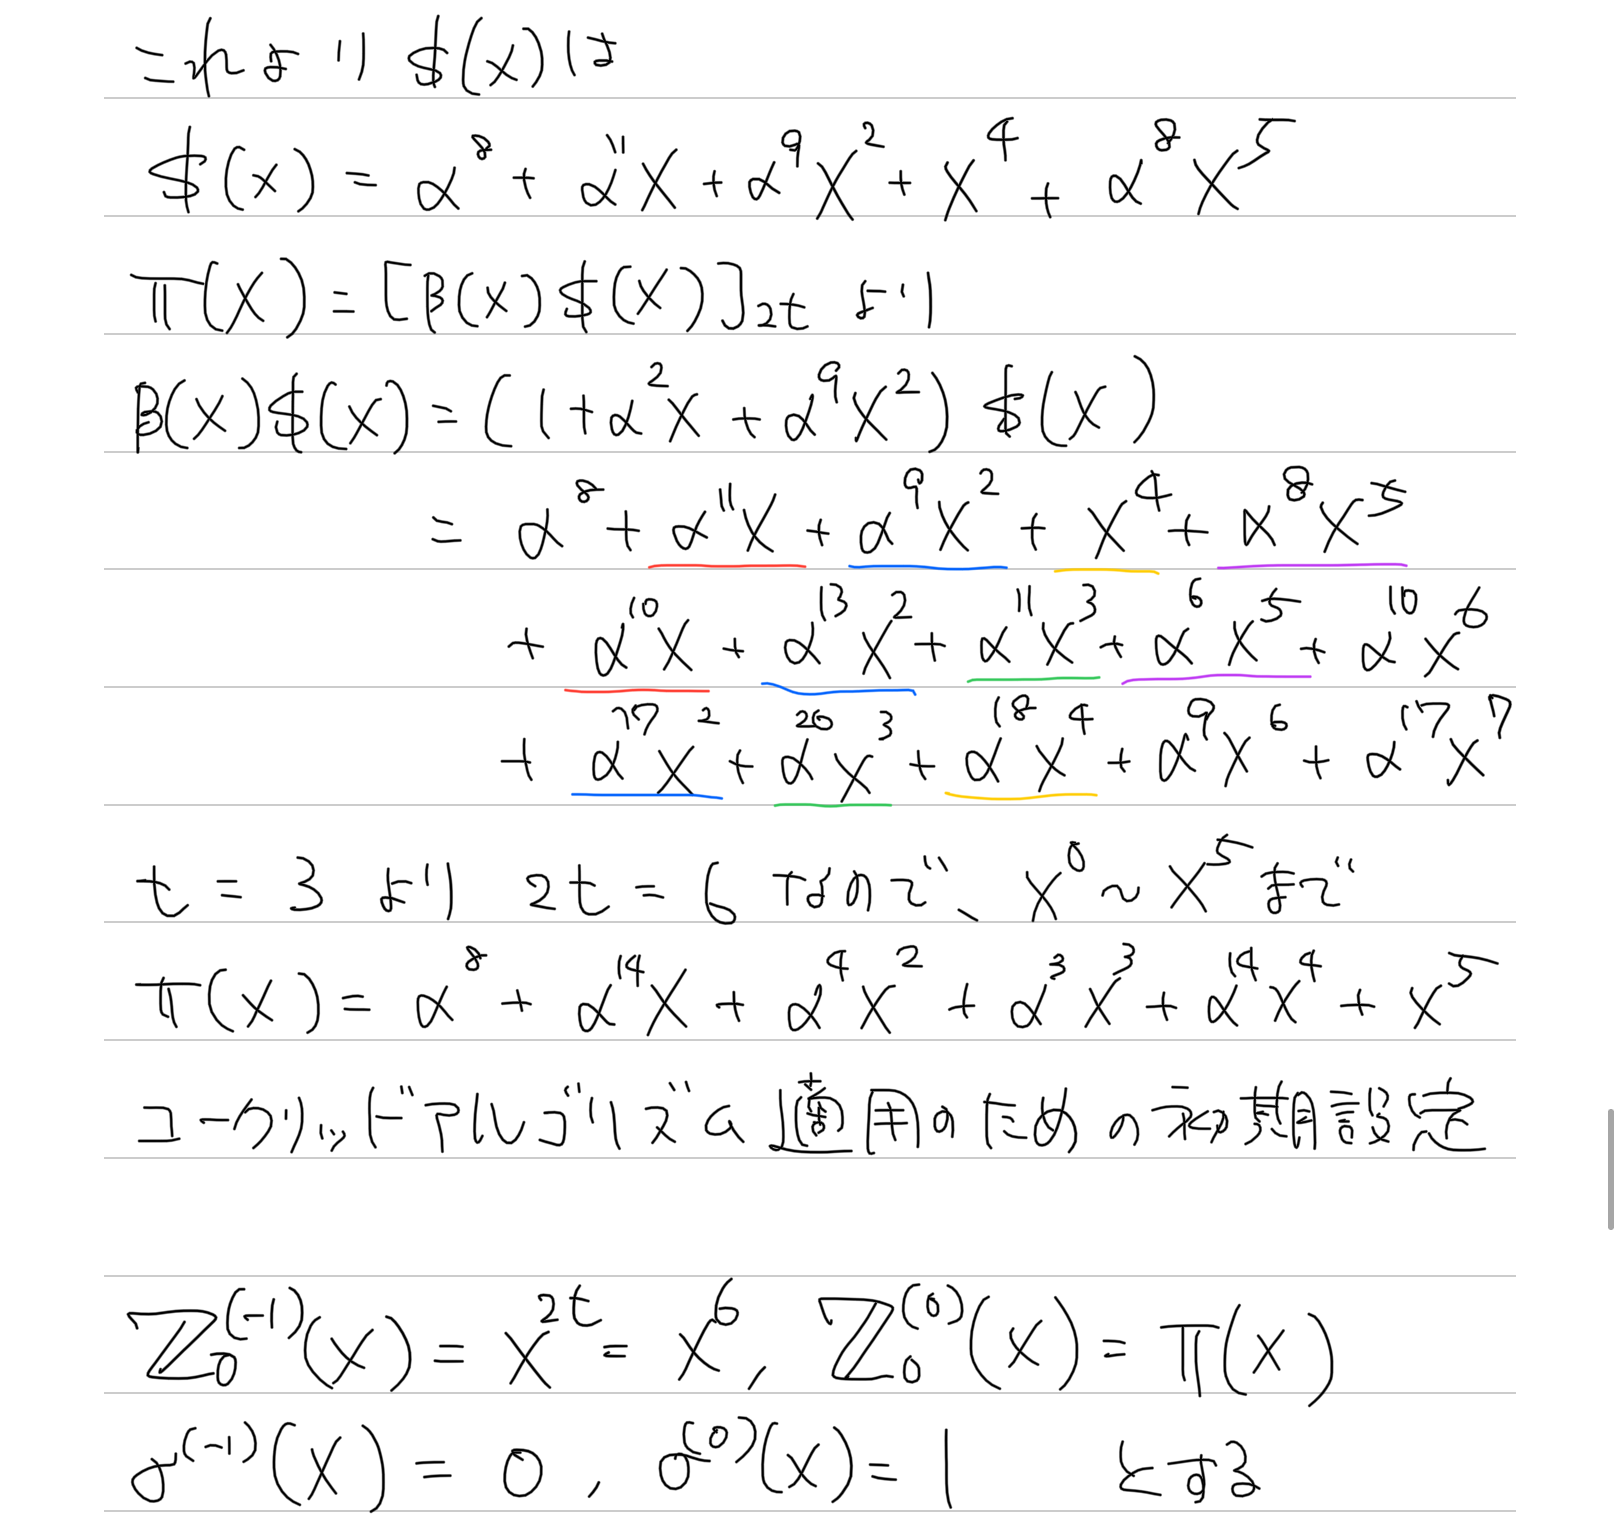 これより $(X)は
$(X) = α^8 + α^11 X + α^9 X^2 + X^4 + α^8 X^5
π(X) = [β(X)$(X)]_2t より
β(X)$(X) = (1 + α^2 X + α^9 X^2) $(X)
= α^8 + α^11 X + α^9 X^2 + X^4 + α^8 X^5
+ α^10 X + α^13 X^2 + α^11 X^3 + α^6 X^5 + α^10 X^6
+ α^17 X^2 + α^20 X^3 + α^18 X^4 + α^9 X^6 + α^17 X^7
t = 3 より 2t = 6 なので、X^0 ~ X^5 まで
π(X) = α^8 + α^14 X + α^4 X^2 + α^3 X^3 + α^14 X^4 + X^5
ユークリッドアルゴリズム適用のための初期設定
Z_0^(-1)(X) = X^2t = X^6, Z_0^(0)(X) = π(X)
σ^(-1)(X) = 0, σ^(0)(X) = 1 とする